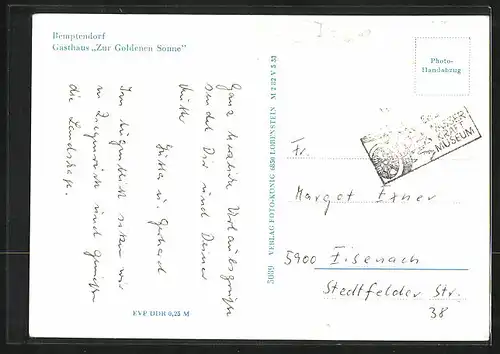 Remptendorf
Gasthaus „Zur Goldenen Sonne“
Ganz herzliche Urlaubsgrüße
sendet Dir und Deiner
Mutter
Jutta u. Gerhard
Im Augenblick sitzen wir
in Ziegenrück und genießen
die Landschaft.
EVP DDR 0,25 M
5089 VERLAG FOTOCHIMUKO 6850 LOBENSTEIN M 282 A 5 83
Photo-
Handabzug
WASSER
KRAFT
MUSEUM
Fr.
Margot Exner
5900 Eisenach
Stedtfelder Str.
38